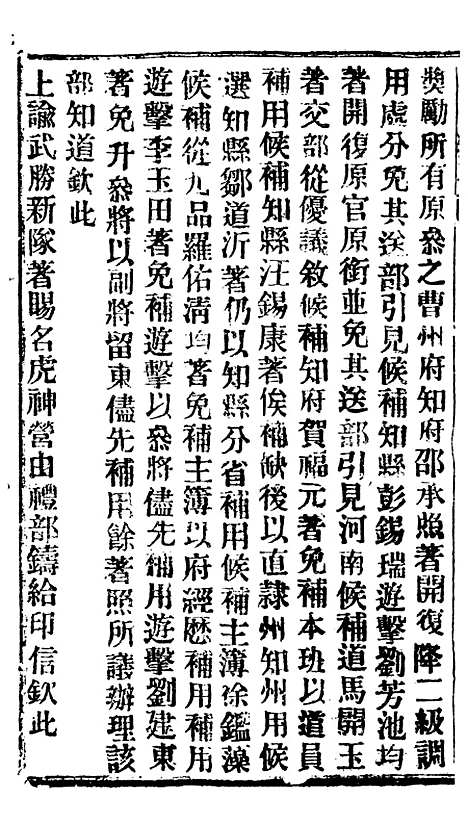 獎勵所有原叅之曹州府知府邵承照著開復降二級調
用處分免其送部引見候補知縣彭錫瑞遊擊劉芳池均
著開復原官原銜並免其送部引見河南候補道馬開玉
著交部從優議敘候補知府賀福元著免補本班以道員
補用候補知縣汪錫康著俟補缺後以直隸州知州用候
選知縣鄒道沂著仍以知縣分省補用候補主簿徐鑑藻
候補從九品羅佑清均著免補主簿以府經歷補用補用
遊擊李玉田著免補遊擊以叅將儘先補用遊擊劉建東
著免升叅將以副將留東儘先補用餘著照所議辦理該
部知道欽此
上諭武勝新隊著賜名虎神營由禮部鑄給印信欽此